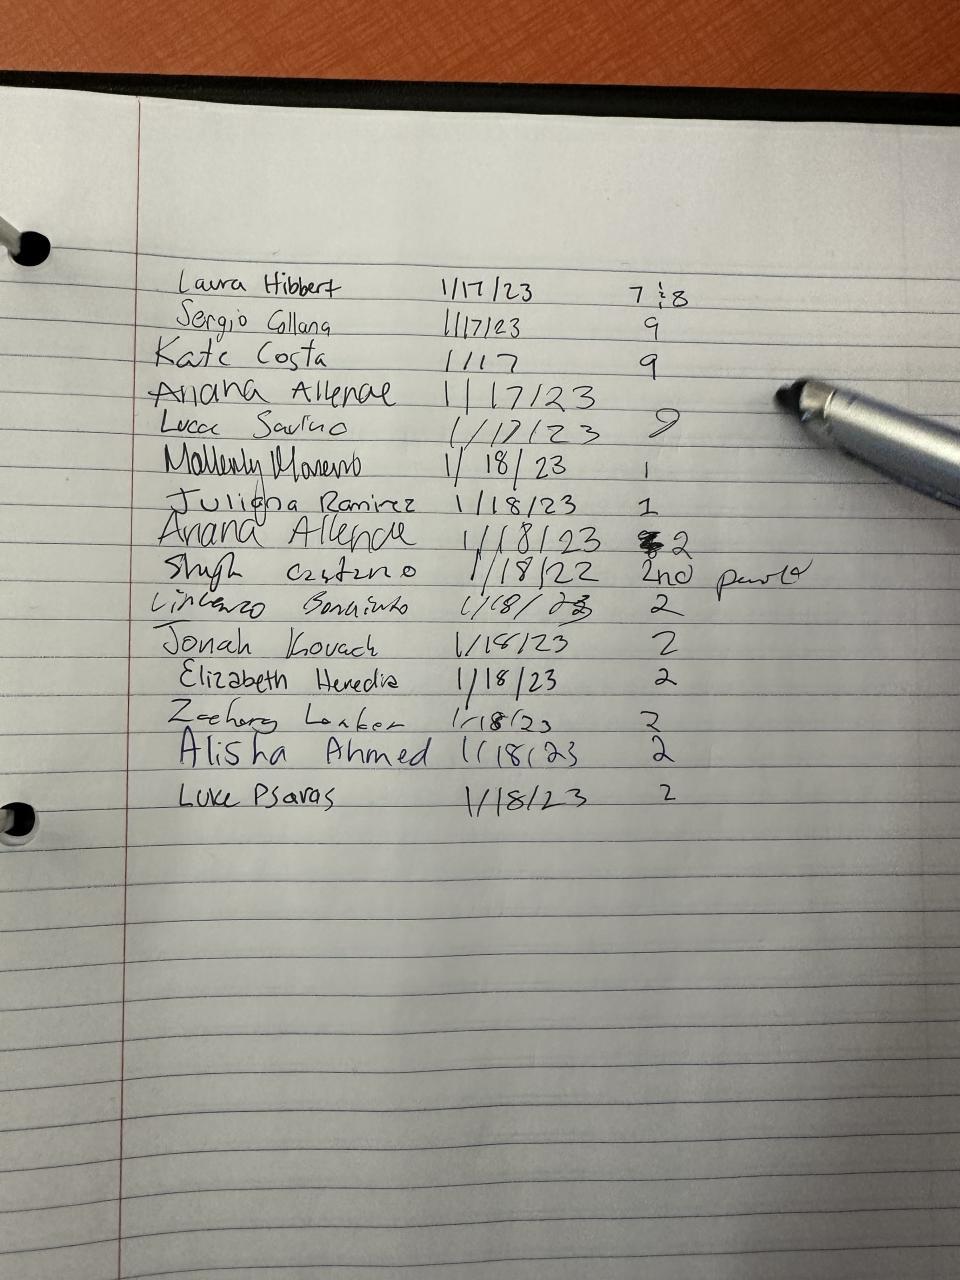 Laura Hibbert 1/17/23 7 & 8
Sergio Collana 1/17/23 9
Kate Costa 1/17 9
Ariana Allende 1/17/23
Lucca Savino 1/17/23 9
1/18/23 1
Juliana Ramirez 1/18/23 1
Ariana Allende 1/18/23 2
1/18/22 2nd
Vincenzo 1/18/23 2
Jonah Kovach 1/18/23 2
Elizabeth Heredia 1/18/23 2
1/18/23 2
Alisha Ahmed 1/18/23 2
Luke Psaras 1/18/23 2